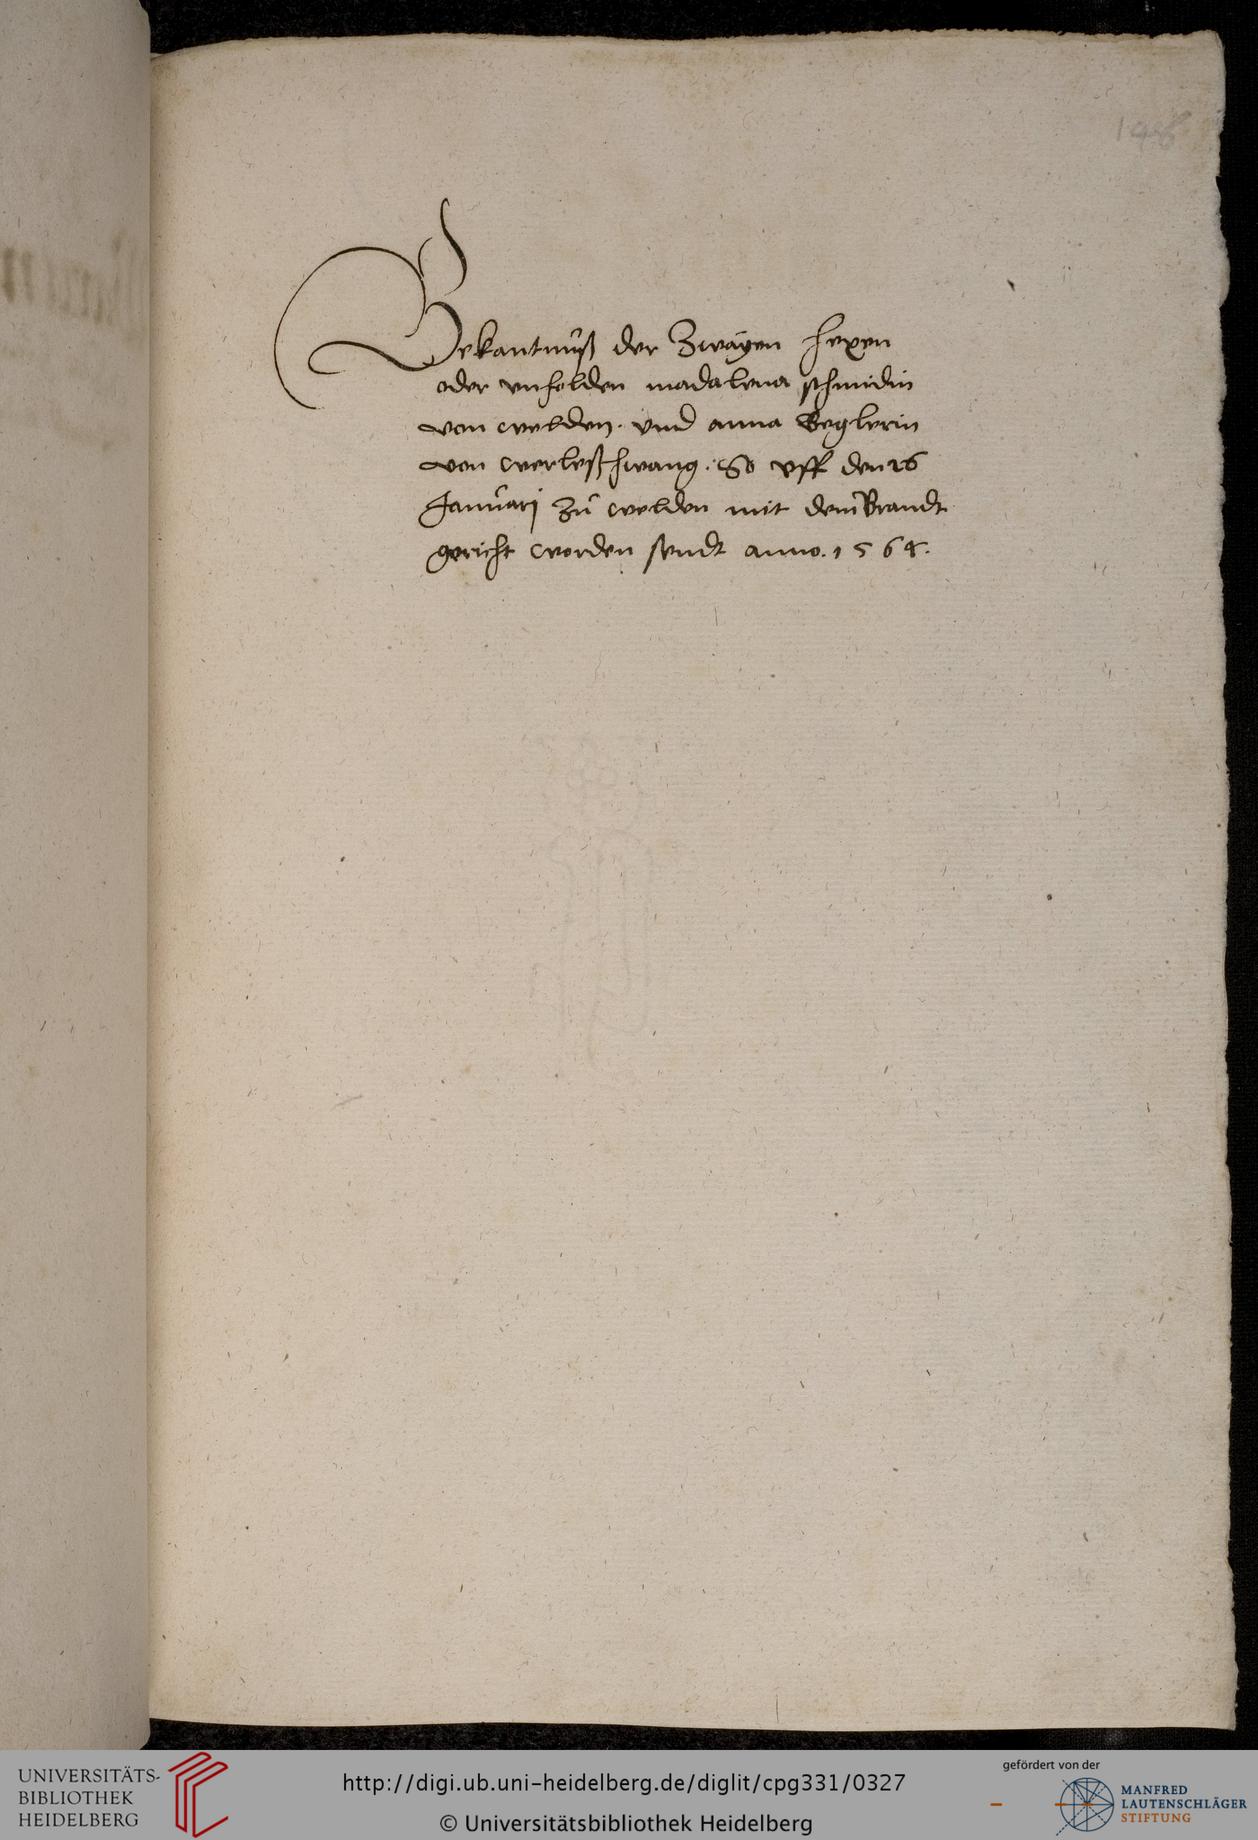 148
Bekantnuß der Zwayen hexen
oder vnholden madalena schmidin
von welden. vnd anna Beglerin
von werleschwang. So vff den 26
Januarj Zu welden mit dem Brandt
gericht worden sendt anno. 1564.
UNIVERSITÄTS-
BIBLIOTHEK
HEIDELBERG
http://digi.ub.uni-heidelberg.de/diglit/cpg331/0327
© Universitätsbibliothek Heidelberg
gefördert von der
MANFRED
LAUTENSCHLÄGER
STIFTUNG